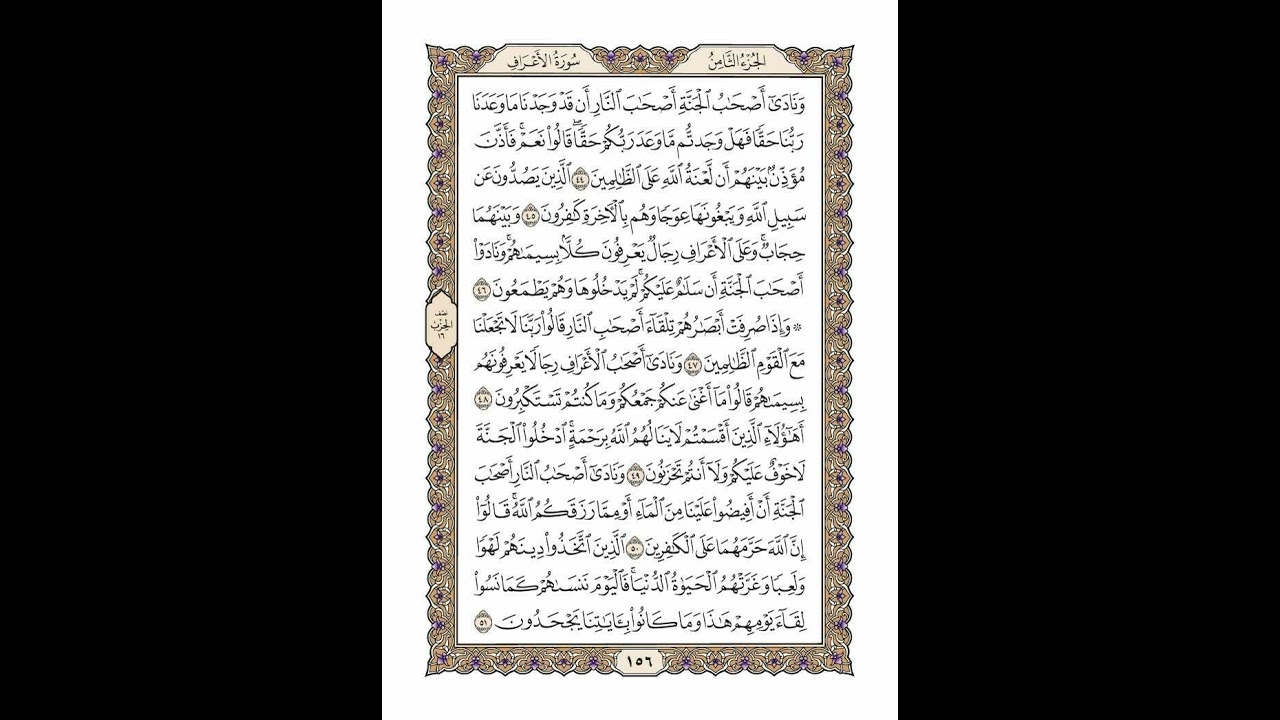 الجُزْءُ الثَّامِنُ
سُورَةُ الأَعْرَافِ
وَنَادَىٰٓ أَصْحَٰبُ ٱلْجَنَّةِ أَصْحَٰبَ ٱلنَّارِ أَن قَدْ وَجَدْنَا مَا وَعَدَنَا
رَبُّنَا حَقًّا فَهَلْ وَجَدتُّم مَّا وَعَدَ رَبُّكُمْ حَقًّا ۖ قَالُوا۟ نَعَمْ ۚ فَأَذَّنَ
مُؤَذِّنٌۢ بَيْنَهُمْ أَن لَّعْنَةُ ٱللَّهِ عَلَى ٱلظَّٰلِمِينَ ٤٤ ٱلَّذِينَ يَصُدُّونَ عَن
سَبِيلِ ٱللَّهِ وَيَبْغُونَهَا عِوَجًا وَهُم بِٱلْءَاخِرَةِ كَٰفِرُونَ ٤٥ وَبَيْنَهُمَا
حِجَابٌ ۚ وَعَلَى ٱلْأَعْرَافِ رِجَالٌ يَعْرِفُونَ كُلًّۢا بِسِيمَىٰهُمْ ۚ وَنَادَوْا۟
أَصْحَٰبَ ٱلْجَنَّةِ أَن سَلَٰمٌ عَلَيْكُمْ ۚ لَمْ يَدْخُلُوهَا وَهُمْ يَطْمَعُونَ ٤٦
۞ وَإِذَا صُرِفَتْ أَبْصَٰرُهُمْ تِلْقَآءَ أَصْحَٰبِ ٱلنَّارِ قَالُوا۟ رَبَّنَا لَا تَجْعَلْنَا
مَعَ ٱلْقَوْمِ ٱلظَّٰلِمِينَ ٤٧ وَنَادَىٰٓ أَصْحَٰبُ ٱلْأَعْرَافِ رِجَالًا يَعْرِفُونَهُم
بِسِيمَىٰهُمْ قَالُوا۟ مَآ أَغْنَىٰ عَنكُمْ جَمْعُكُمْ وَمَا كُنتُمْ تَسْتَكْبِرُونَ ٤٨
أَهَٰٓؤُلَآءِ ٱلَّذِينَ أَقْسَمْتُمْ لَا يَنَالُهُمُ ٱللَّهُ بِرَحْمَةٍ ۚ ٱدْخُلُوا۟ ٱلْجَنَّةَ
لَا خَوْفٌ عَلَيْكُمْ وَلَآ أَنتُمْ تَحْزَنُونَ ٤٩ وَنَادَىٰٓ أَصْحَٰبُ ٱلنَّارِ أَصْحَٰبَ
ٱلْجَنَّةِ أَنْ أَفِيضُوا۟ عَلَيْنَا مِنَ ٱلْمَآءِ أَوْ مِمَّا رَزَقَكُمُ ٱللَّهُ ۚ قَالُوٓا۟
إِنَّ ٱللَّهَ حَرَّمَهُمَا عَلَى ٱلْكَٰفِرِينَ ٥٠ ٱلَّذِينَ ٱتَّخَذُوا۟ دِينَهُمْ لَهْوًا
وَلَعِبًا وَغَرَّتْهُمُ ٱلْحَيَوٰةُ ٱلدُّنْيَا ۚ فَٱلْيَوْمَ نَنسَىٰهُمْ كَمَا نَسُوا۟
لِقَآءَ يَوْمِهِمْ هَٰذَا وَمَا كَانُوا۟ بِـَٔايَٰتِنَا يَجْحَدُونَ ٥١
نصف
الحزب
١٦
١٥٦